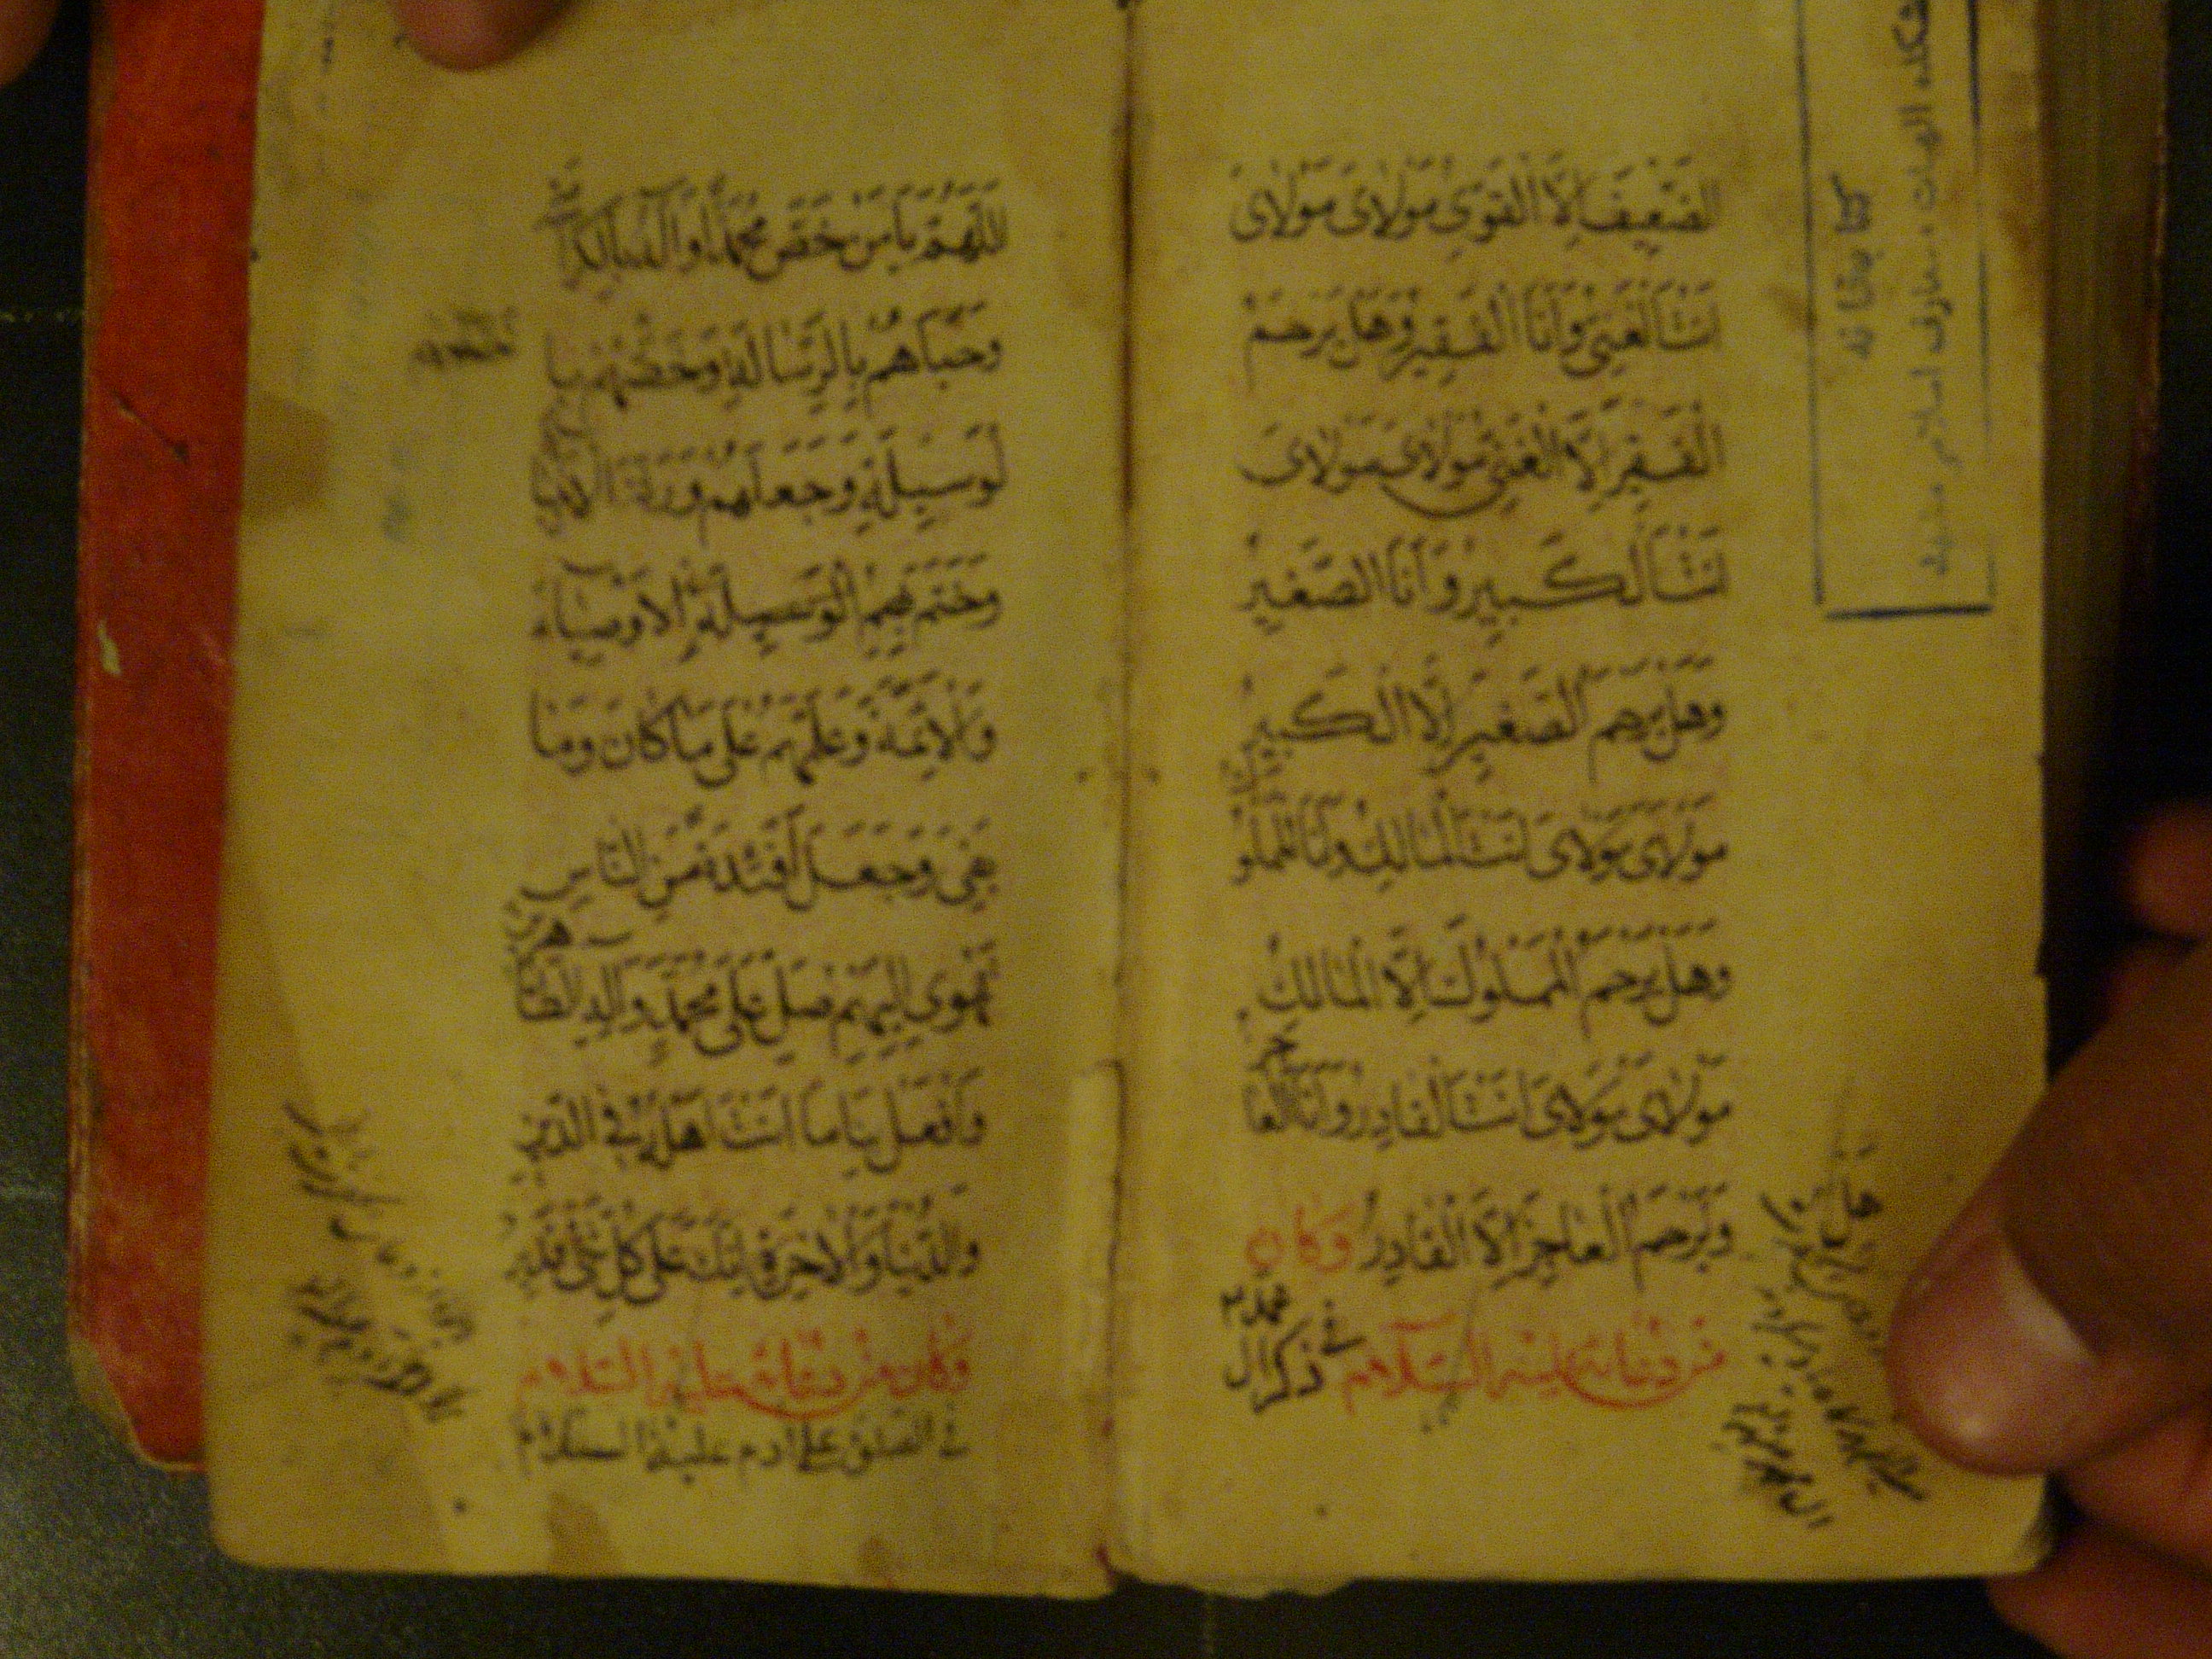 الضَّعِيفَ اِلَّا الْقَوِيُّ مَوْلَايَ مَوْلَايَ
اَنْتَ الْغَنِيُّ وَاَنَا الْفَقِيرُ وَهَلْ يَرْحَمُ
الْفَقِيرَ اِلَّا الْغَنِيُّ مَوْلَايَ مَوْلَايَ
اَنْتَ الْكَبِيرُ وَاَنَا الصَّغِيرُ
وَهَلْ يَرْحَمُ الصَّغِيرَ اِلَّا الْكَبِيرُ
مَوْلَايَ مَوْلَايَ اَنْتَ الْمَالِكُ وَاَنَا الْمَمْلُو
وَهَلْ يَرْحَمُ الْمَمْلُوكَ اِلَّا الْمَالِكُ
مَوْلَايَ مَوْلَايَ اَنْتَ الْقَادِرُ وَاَنَا الْعَا جِزُ
وَيَرْحَمُ الْعَاجِزَ اِلَّا الْقَادِرُ وَكَانَ
مِنْ دُعَائِهِ عَلَيْهِ السَّلَامُ فِي ذِكْرِ الِ مُحَمَّد
كتابخانه
دانشکده الهیات و معارف اسلامی مشهد
اَللّٰهُمَّ يَا مَنْ خَصَّ مُحَمَّدًا وَاٰلَهُ بِالْكَرَامَةِ
وَحَبَاهُمْ بِالرِّسَالَةِ وَخَصَّهُمْ بِا
لْوَسِيلَةِ وَجَعَلَهُمْ وَرَثَةَ الْاَنْبِيَاءِ
وَخَتَمَ بِهِمُ الْوَسِيلَةِ الْاَوْصِيَاءَ
وَالْاَئِمَّةَ وَعَلَّمَهُمْ عِلْمَ مَا كَانَ وَمَا
بَقِيَ وَجَعَلَ اَفْئِدَةً مِنَ النَّاسِ
تَهْوِي اِلَيْهِمْ صَلِّ عَلَى مُحَمَّدٍ وَاٰلِهِ الطَّا هِرِينَ
وَافْعَلْ بِنَا مَا اَنْتَ اَهْلُهُ فِي الدِّينِ
وَالدُّنْيَا وَالْاٰخِرَةِ اِنَّكَ عَلَى كُلِّ شَيْءٍ قَدِيرٌ
وَكَانَ مِنْ دُعَائِهِ عَلَيْهِ السَّلَامُ
فِي الصلوة على ادم عليه السلام